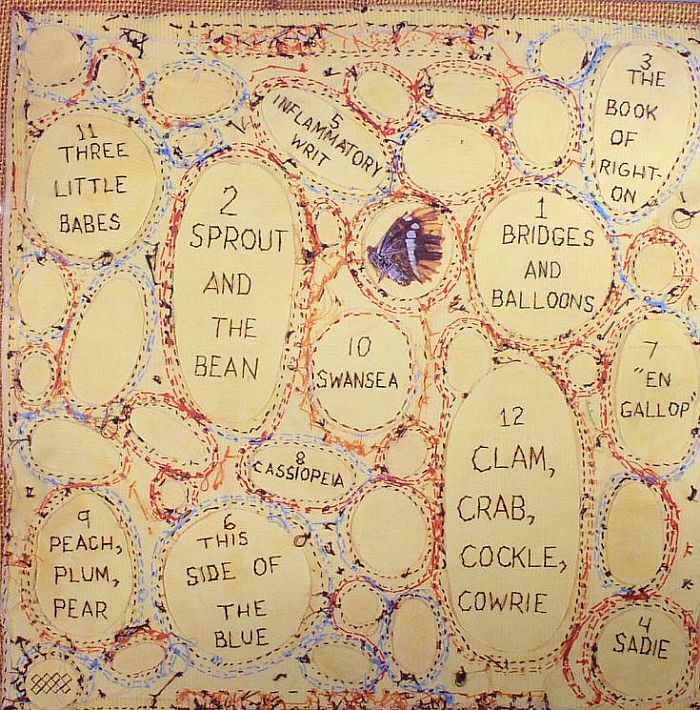 1
BRIDGES
AND
BALLOONS
2
SPROUT
AND
THE
BEAN
3
THE
BOOK
OF
RIGHT-
ON
4
SADIE
5
INFLAMMATORY
WRIT
6
THIS
SIDE OF
THE
BLUE
7
"EN
GALLOP"
8
CASSIOPEIA
9
PEACH,
PLUM,
PEAR
10
SWANSEA
11
THREE
LITTLE
BABES
12
CLAM,
CRAB,
COCKLE,
COWRIE